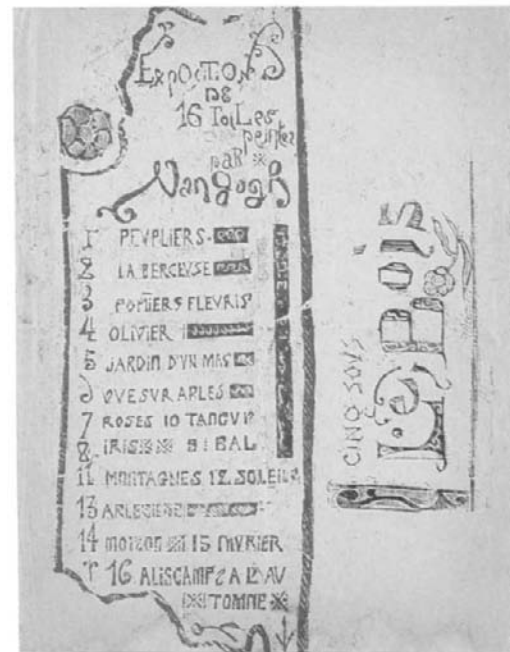 EXPOSITION
DE
16 TOILES
peintes
PAR
Vangogh
1 PEUPLIERS
2 LA BERCEUSE
3 POMIERS FLEURIS
4 OLIVIER
5 JARDIN D'UN MAS
6 VUE SUR ARLES
7 ROSES 10 TANGUY
8 IRIS 9 BAL
11 MONTAGNES 12 SOLEIL
13 ARLESIENE
14 15 MURIER
16 ALISCAMPS A L'AU
TOMNE
CINQ SOUS
Le Bois